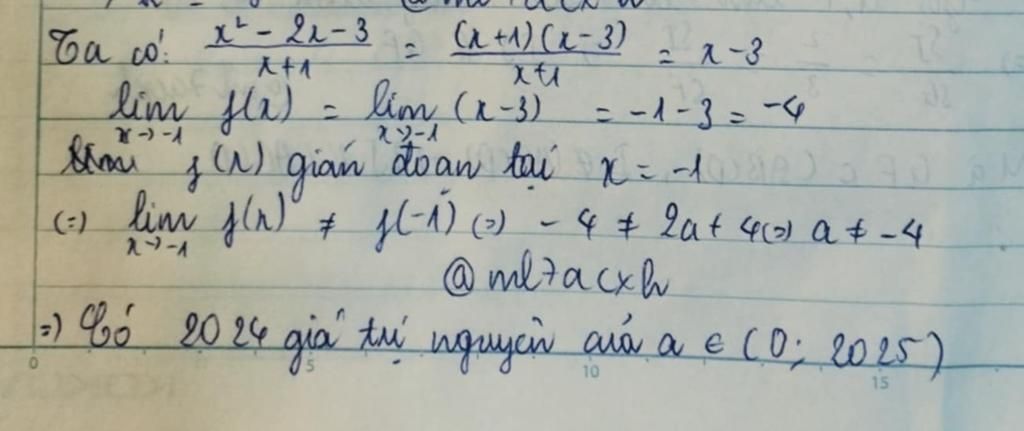 Ta có: x² - 2x - 3 / x + 1 = (x+1)(x-3) / x+1 = x - 3
lim x→-1 f(x) = lim x→-1 (x-3) = -1 - 3 = -4
f(x) gián đoạn tại x = -1
(=) lim x→-1 f(x) ≠ f(-1) (=) -4 ≠ 2a + 4 (=) a ≠ -4
@ml7acxh
=) Có 2024 giá trị nguyên của a ∈ (0; 2025)
0 5 10 15